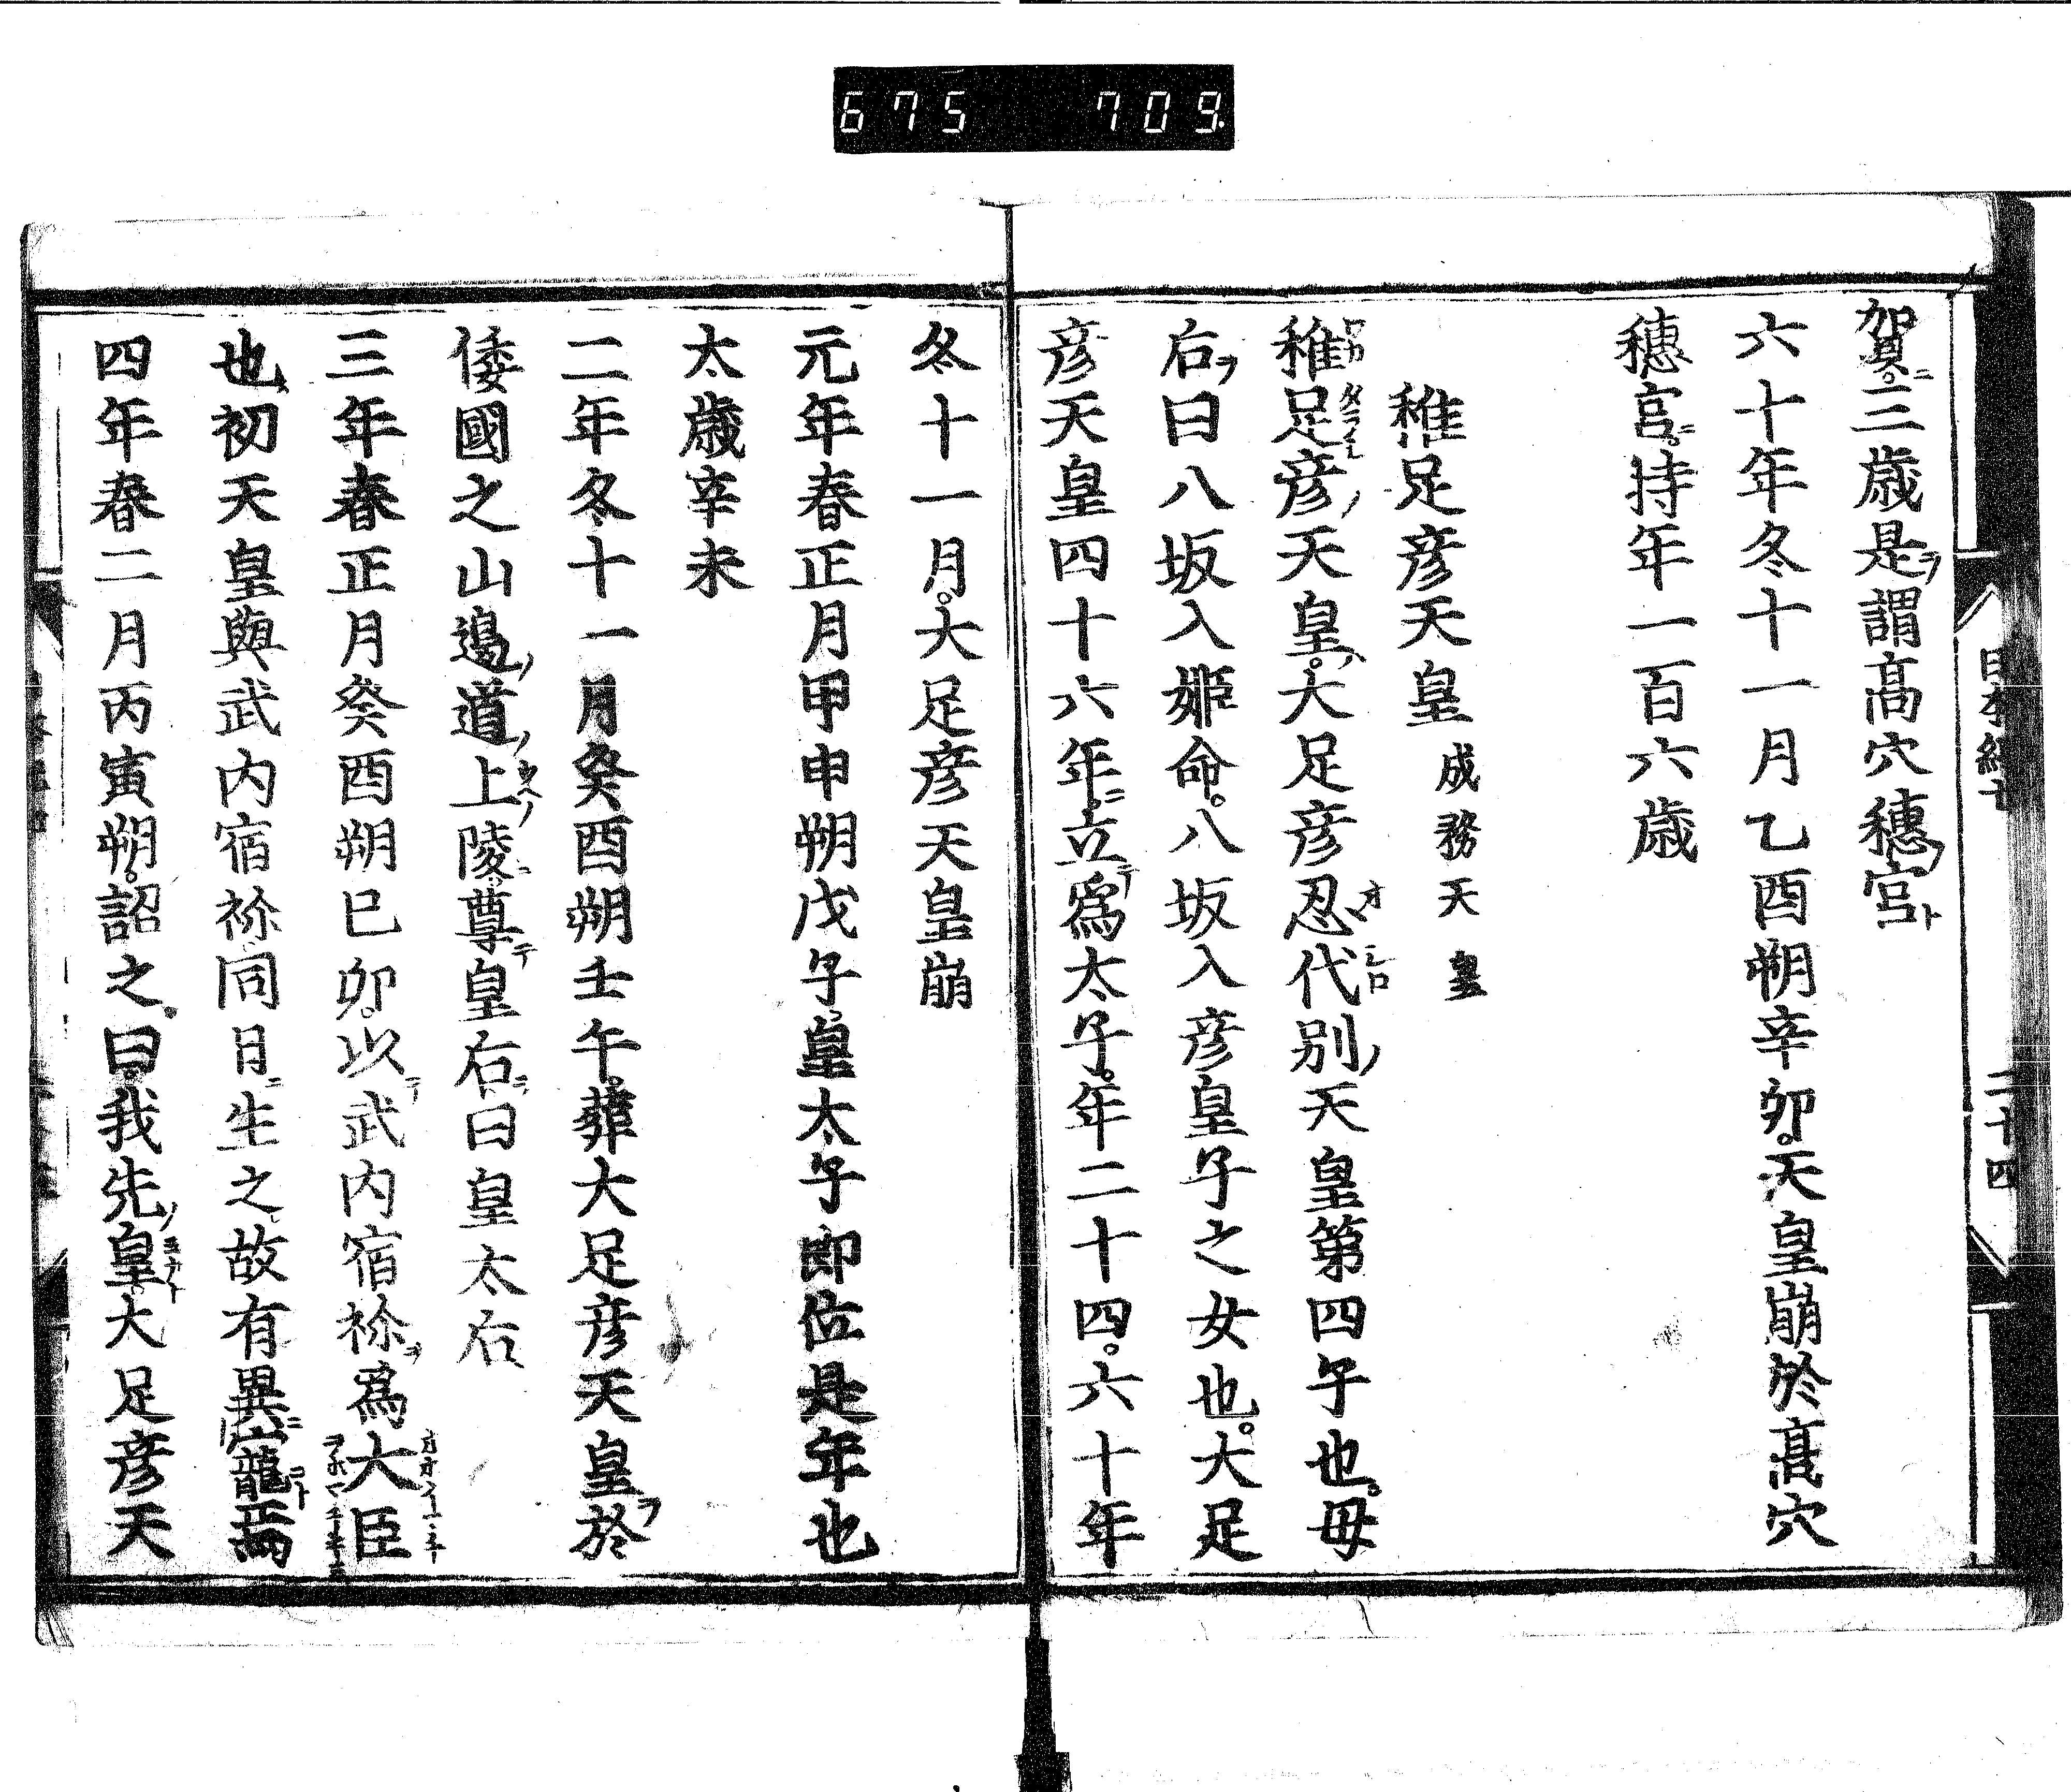 675 709
賀三歳是謂高穴穗宮
六十年冬十一月乙酉朔辛卯天皇崩於高穴
穗宮持年一百六歳
稚足彦天皇 成務天皇
稚足彦天皇大足彦忍代別天皇第四子也母
后曰八坂入姬命八坂入彦皇子之女也大足
彦天皇四十六年立爲太子年二十四六十年
冬十一月大足彦天皇崩
元年春正月甲申朔戊子皇太子即位是年也
太歳辛未
二年冬十一月癸酉朔壬午葬大足彦天皇於
倭國之山邊道上陵尊皇后曰皇太后
三年春正月癸酉朔己卯以武内宿祢爲大臣
也初天皇與武内宿祢同日生之故有異寵焉
四年春二月丙寅朔詔之曰我先皇大足彦天